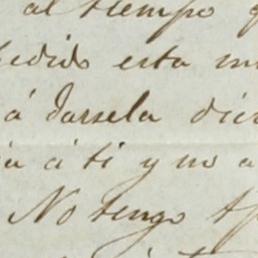 al tiempo q
edido esta m
á darsela dic
a á ti y no a
No tengo t